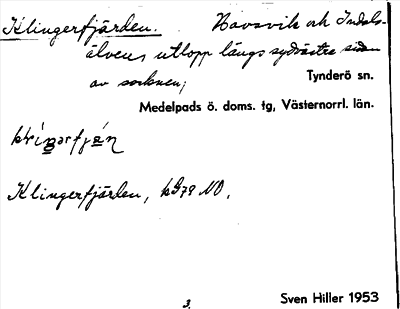 Klingerfjärden. Havsvik och Indals-
älvens utlopp längs sydvästra sidan
av socknen;
Tynderö sn.
Medelpads ö. doms. tg, Västernorrl. län.
Klingerfjärden, kG79 NO.
3.
Sven Hiller 1953